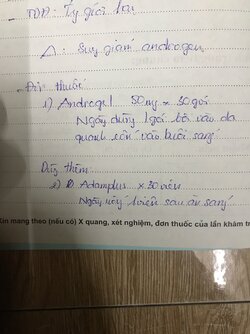 Δ: Suy giảm androgen
Đơn thuốc
1) Androgel 50mg x 30 gói
Ngày dùng 1 gói bôi vào da
quanh rốn vào buổi sáng
Dùng thêm:
2) Adamplus x 30 viên
Ngày uống 1 viên sau ăn sáng
Xin mang theo (nếu có) X quang, xét nghiệm, đơn thuốc của lần khám tr